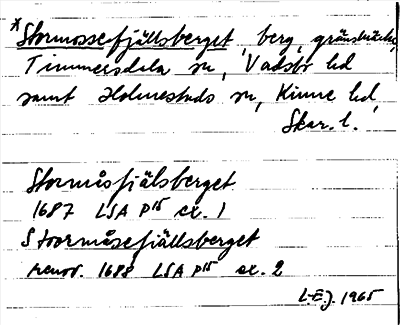 *Stormossefjällsberget, berg, gränsmärke,
Timmersdala sn, Vadsbo hd
samt Holmestads sn, Kinne hd,
Skar. l.
Stormåsfiälsberget
1687 LSA P15 ex. 1
Stoormåsefiällsberget
renov. 1688 LSA P15 ex. 2
L-E.J. 1965